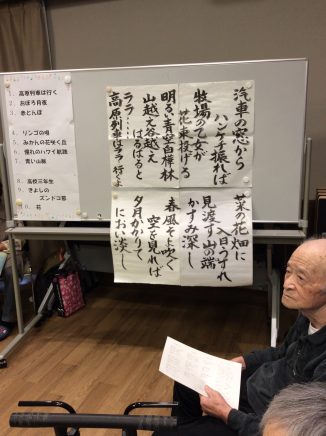 1. 高原列車は行く
2. おぼろ月夜
3. 赤とんぼ
4. リンゴの唄
5. みかんの花咲く丘
6. 憧れのハワイ航路
7. 青い山脈
8. 高校三年生
9. きよしの
ズンドコ節
10. 花
汽車の窓から
ハンケチ振れば
牧場の乙女が
花束投げる
明るい青空白樺林
山越え谷越え
はるばると
ララ……
高原列車はララ行くよ
菜の花畑に
入日うすれ
見渡す山の端
かすみ深し
春風そよ吹く
空を見れば
夕月かかりて
におい淡し